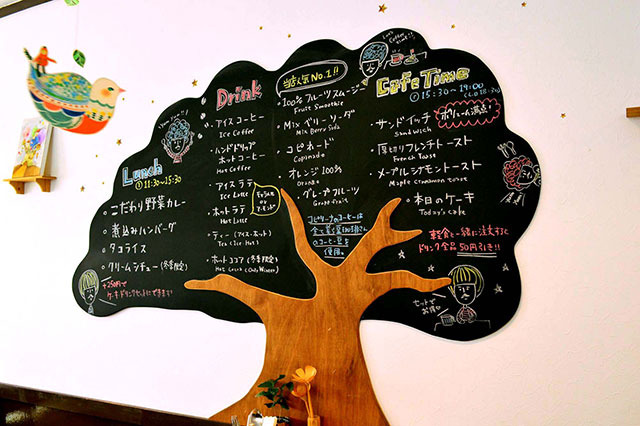 Lunch
11:30~15:30
・こだわり野菜カレー
・煮込みハンバーグ
・タコライス
・クリームシチュー(冬季限定)
+250円で
ケーキ・ドリンクセットにできます!
Drink
・アイスコーヒー
Ice Coffee
・ハンドドリップ
ホットコーヒー
Hot Coffee
・アイスラテ
Ice Latte
・ホットラテ
Hot Latte
・ティー(アイス・ホット)
Tea (Ice Hot)
・ホットココア(冬季限定)
当店人気No.1!!
・100%フルーツスムージー
Fruit Smoothie
・Mixベリーソーダ
Mix Berry Soda
・コピネード
Copinado
・オレンジ100%
Orange
・グレープフルーツ
Grape fruit
コピリーナのコーヒーは
使用。
Coffee time!!
Cafe Time
15:30~19:00
(L.o 18:30)
・サンドイッチ
Sandwich
ボリューム満点!
・厚切りフレンチトースト
French Toast
・メープルシナモントースト
Maple cinnamon toast
・本日のケーキ
Today's cake
軽食と一緒に注文すると
ドリンク全品50円引き!!
セットで
お得!!